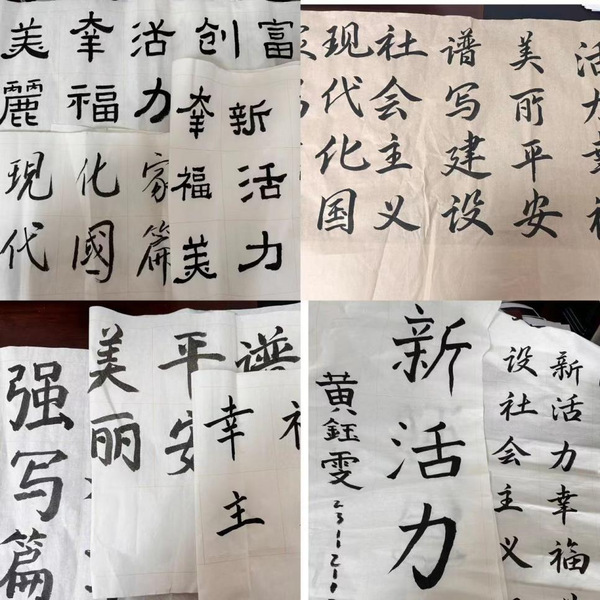 富
创
活力
幸福
美麗
新活力
幸福美
家篇
化國
現代
活力幸福
美丽平安
谱写建设
社会主义
现代化国
谱
平安
美丽
强写篇
幸主
新活力幸福
设社会主义
新活力
黄鈺雯